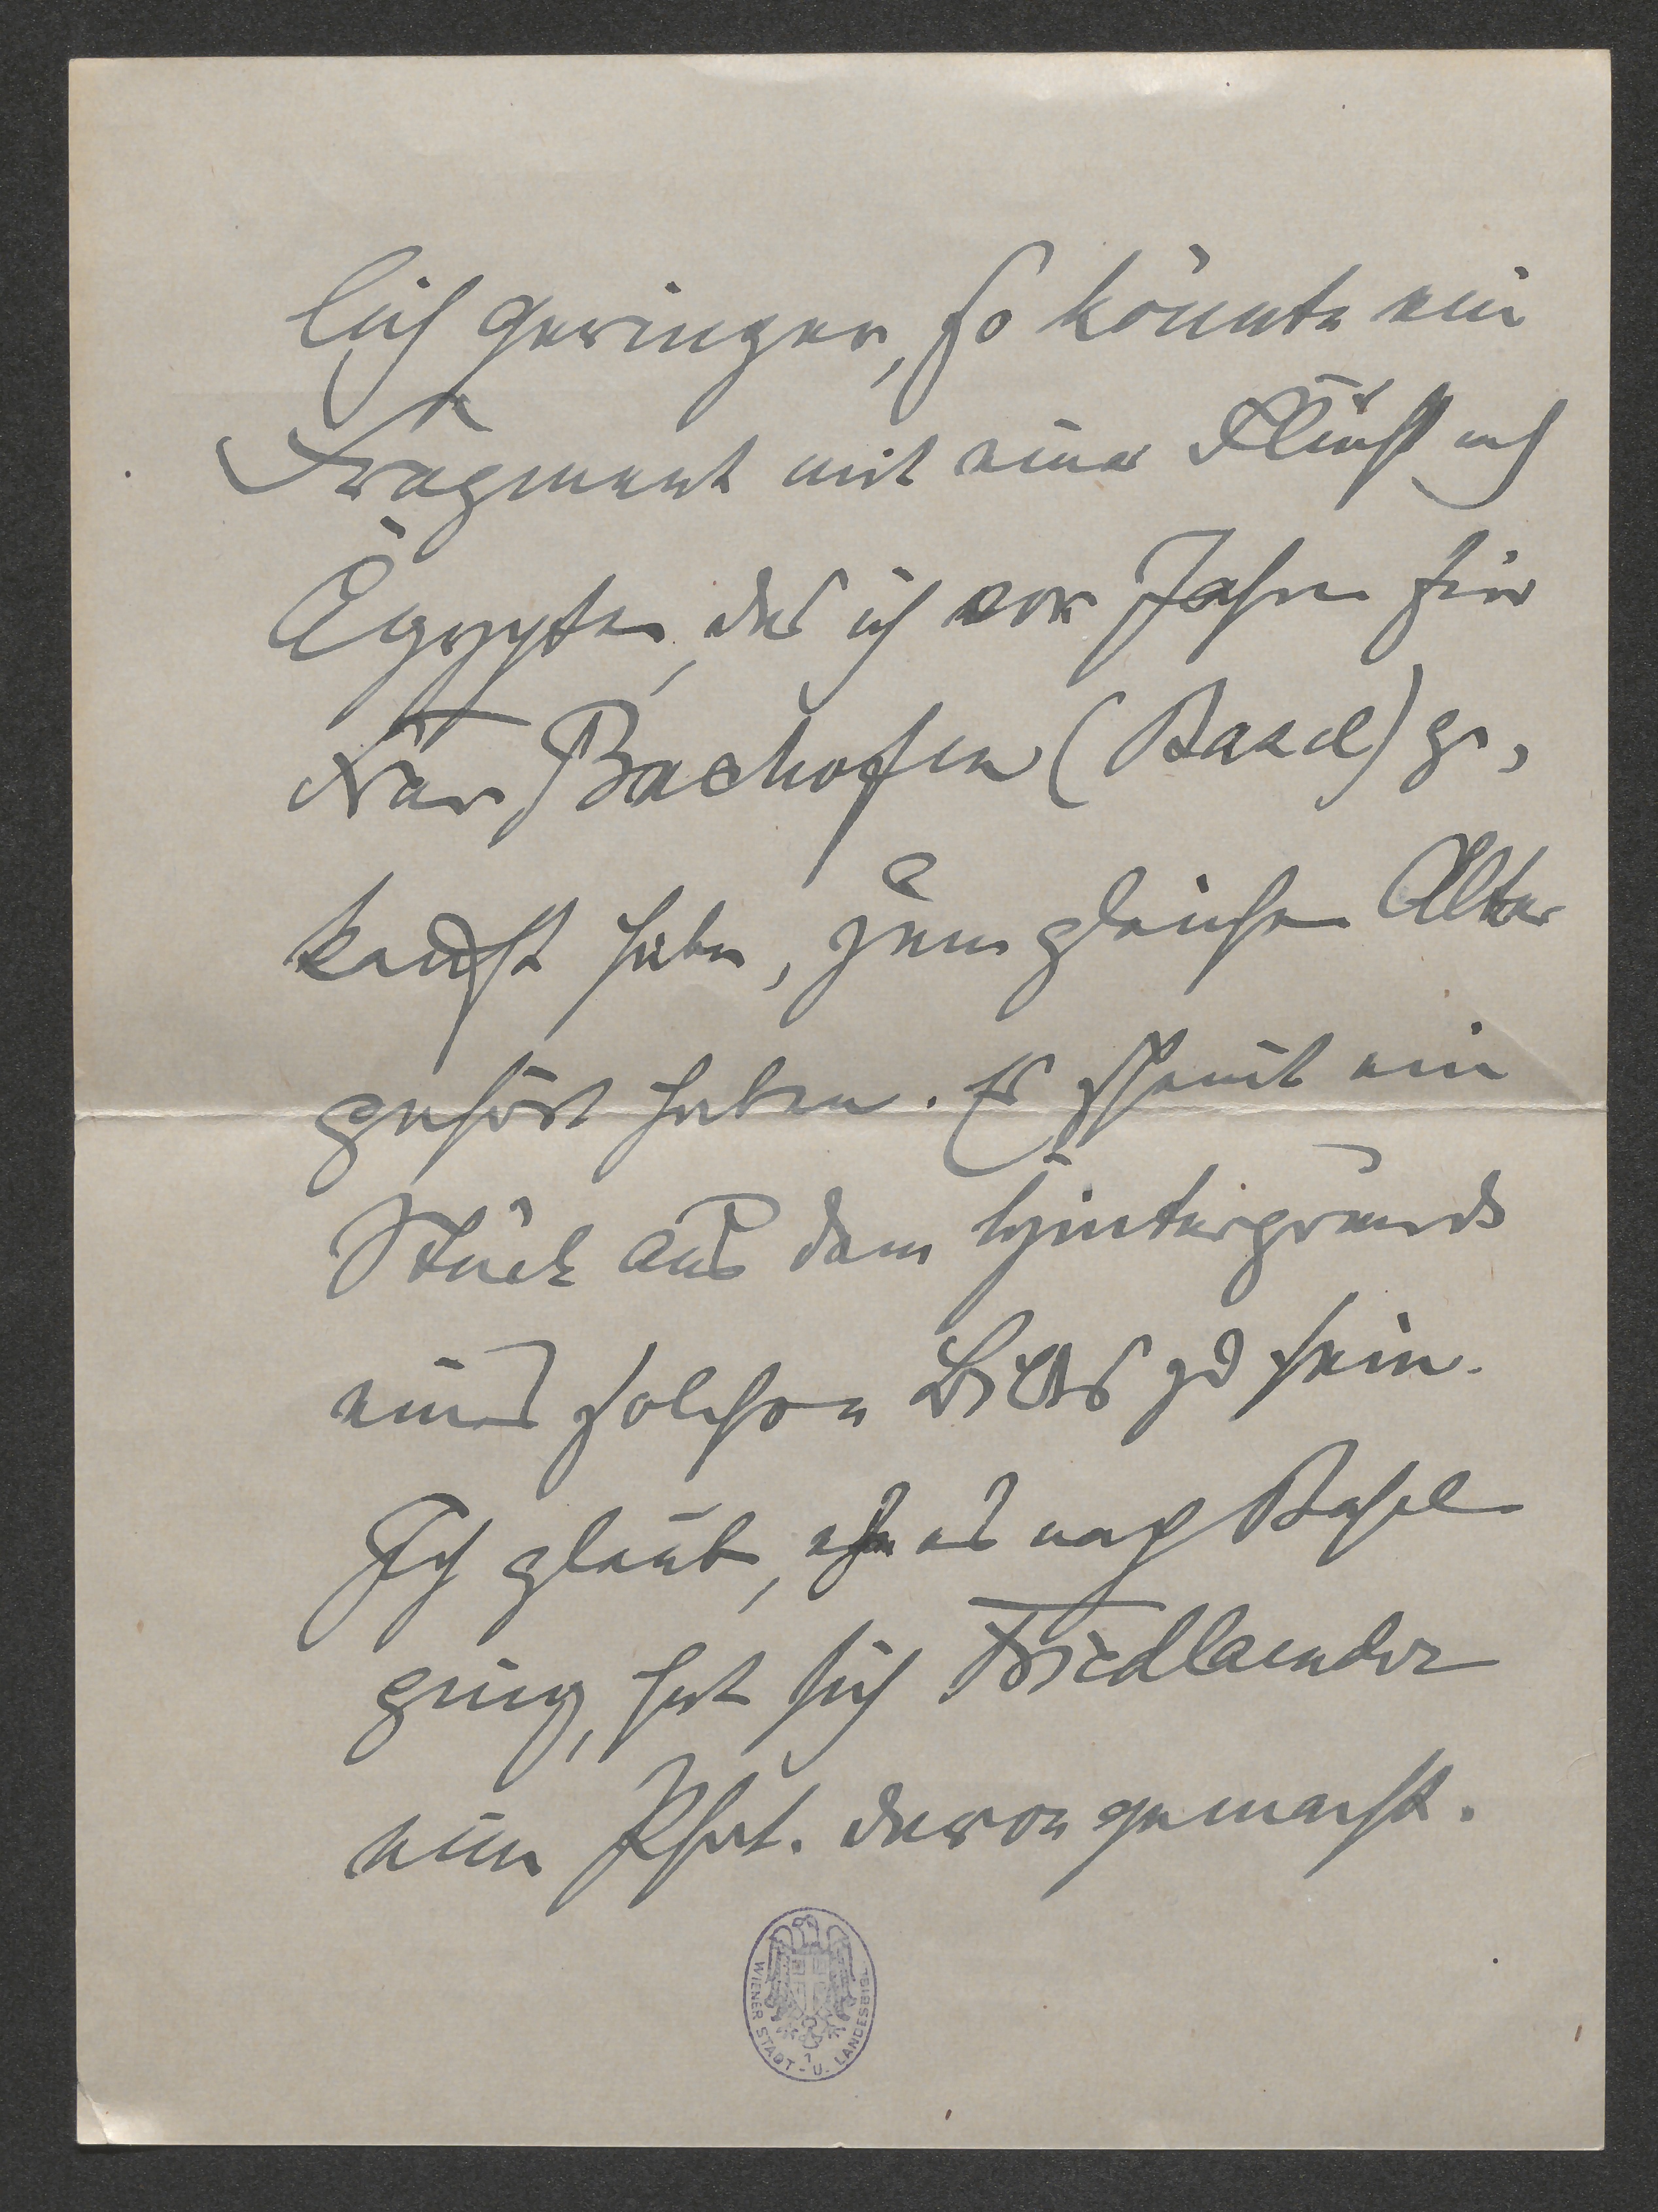 lich geringer, so könnte ein
Fragment mit einer Flucht nach
Ägypten, das ich vor Jahren für
Frau Bachofen (Basel) ge-
kauft habe, zum gleichen Altar
gehört haben. Es scheint ein
Stück aus dem Hintergrunde
eines solchen Bildes zu sein.
Ich glaube, ehe es nach Basel
ging, hat sich Friedlaender
eine Phot. davon gemacht.
WIENER STADT - U. LANDESBIBL.